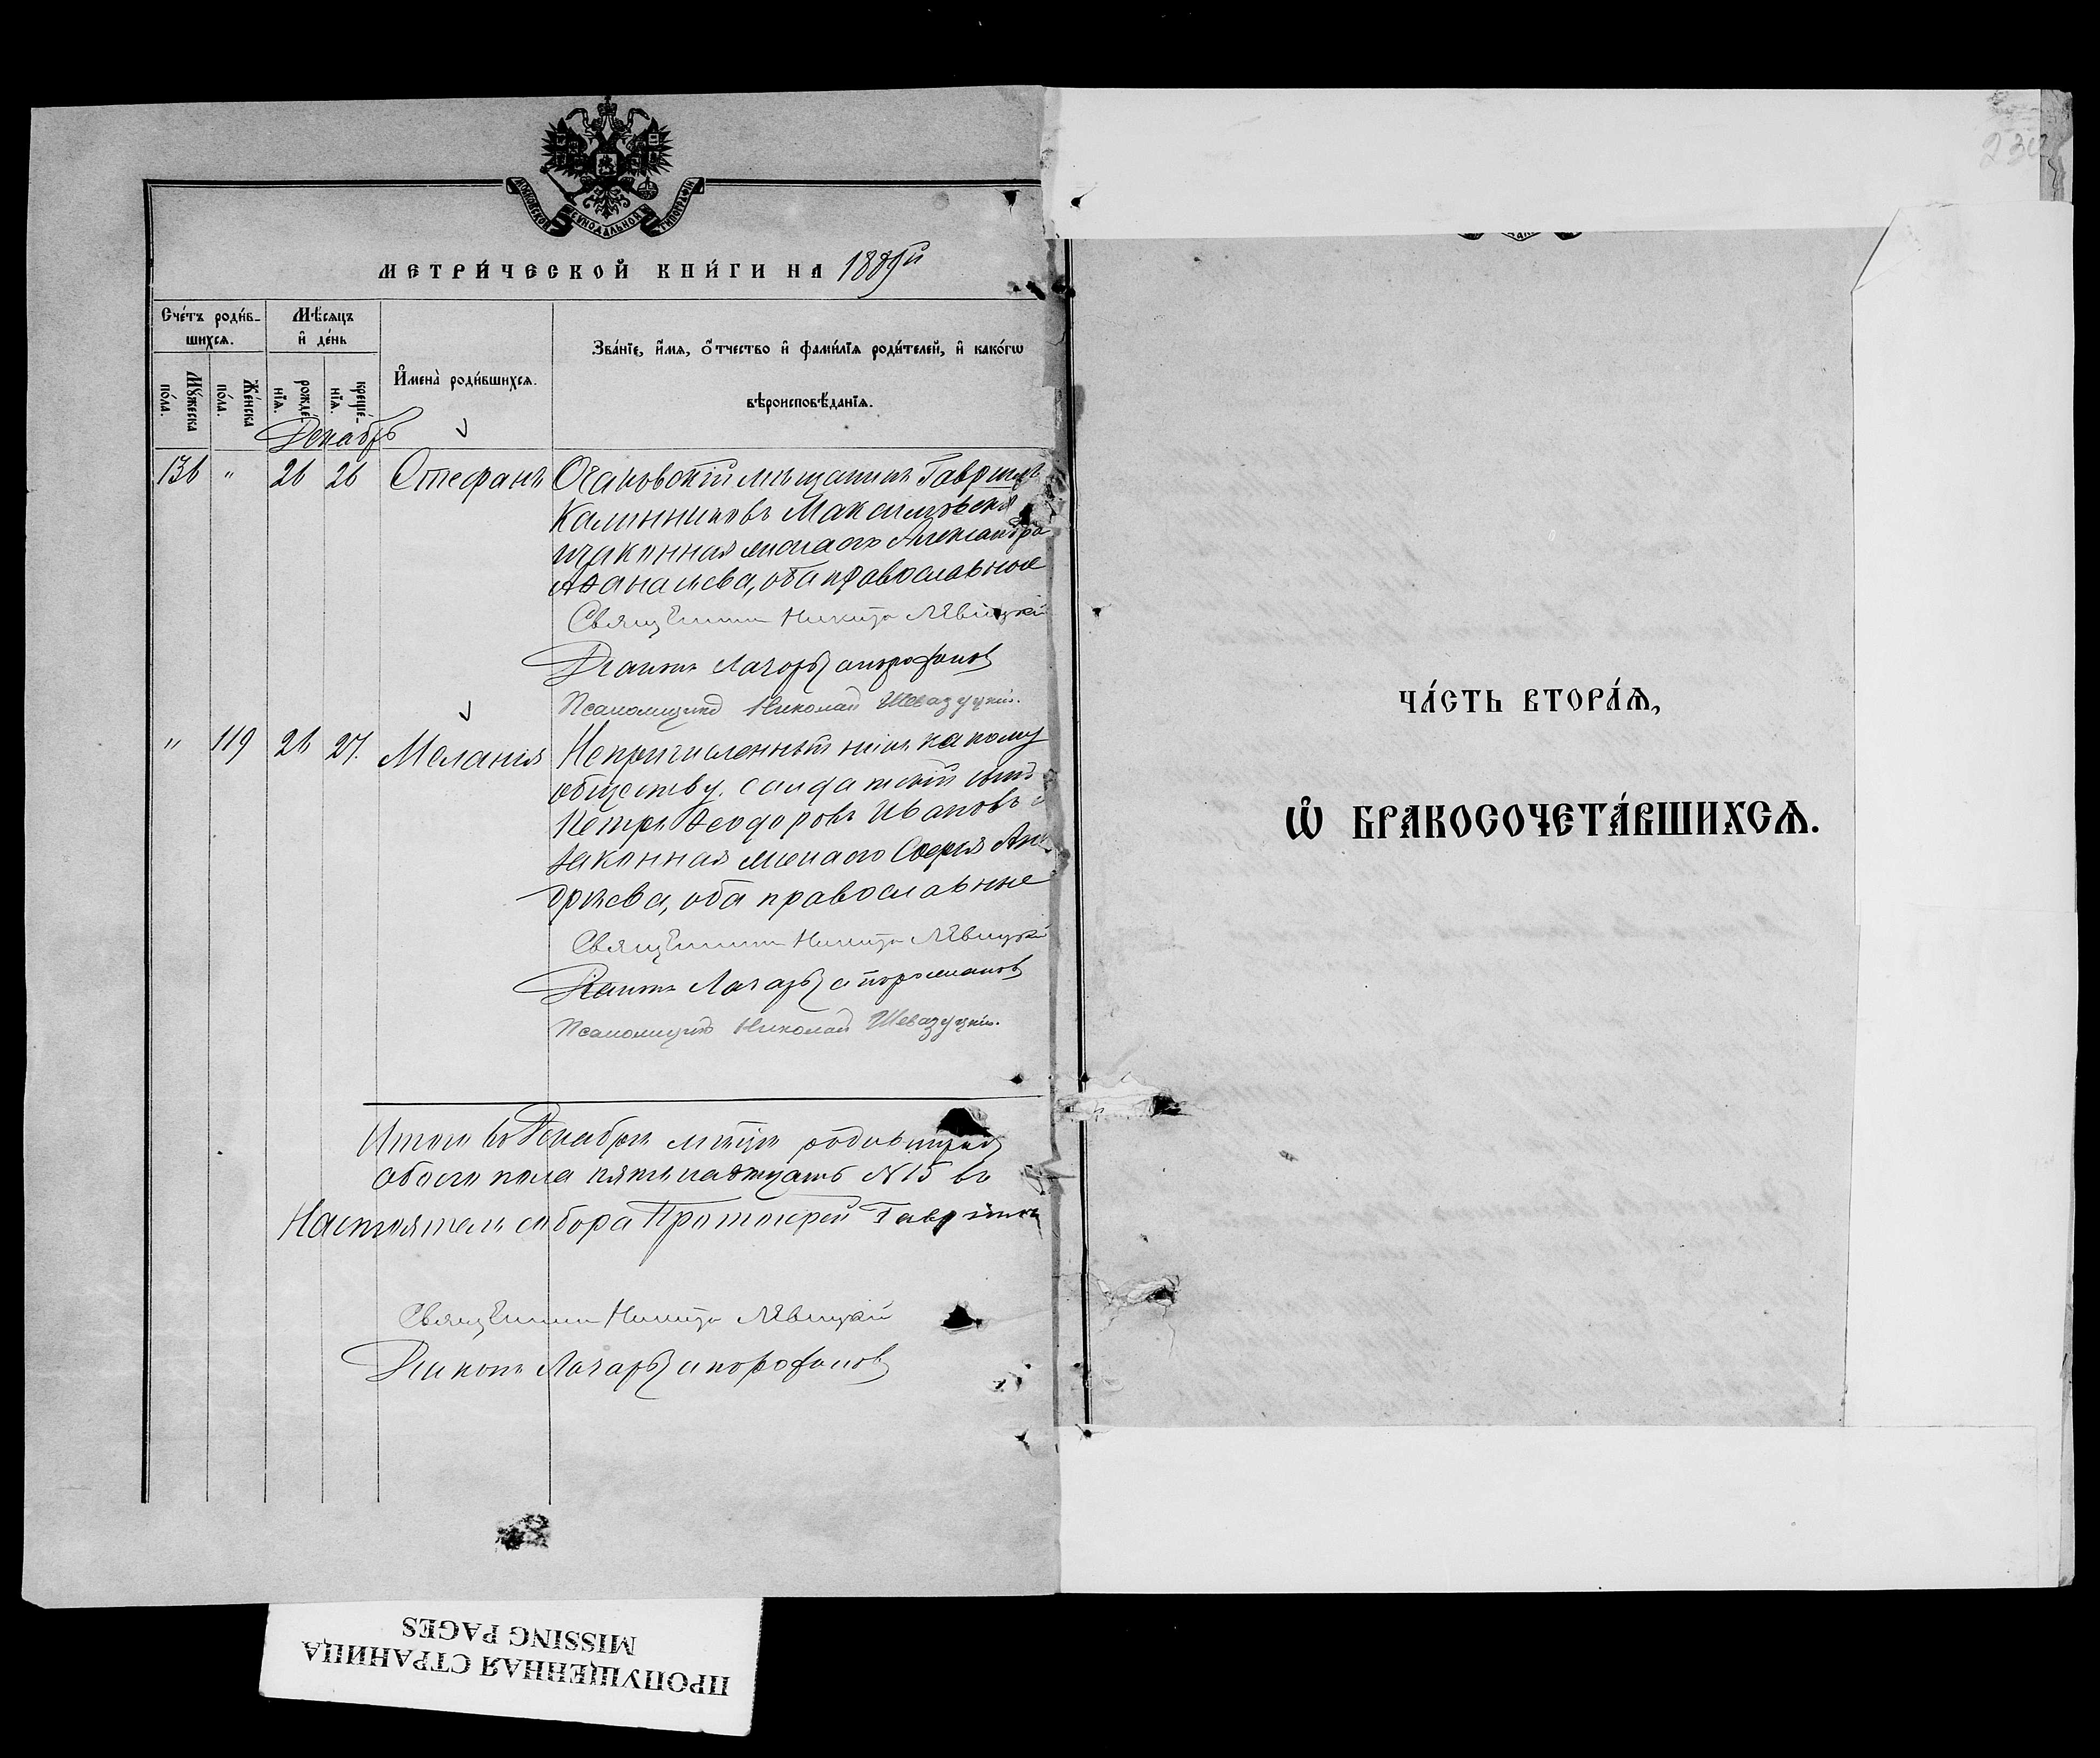 230
МОСКОВСКОЙ СѴНОДАЛЬНОЙ ТИПОГРАФІИ
МЕТРИ́ЧЕСКОЙ КНИ́ГИ НА 1889й
Сче́тъ роди́в-
шихсѧ.
Мѣ́сѧцъ
и҆ де́нь
Мꙋ́жеска
по́ла.
Же́нска
по́ла.
рожде́-
нїѧ.
креще́-
нїѧ.
И҆мена̀ роди́вшихсѧ.
Зва́нїе, и҆́мѧ, ѻ҆́тчество и҆ фами́лїѧ роди́телей, и҆ како́гѡ
вѣроисповѣ́данїѧ.
Декабрь
136 " 26 26 Стефанъ Очаковскій мѣщанинъ Гавріилъ
Калинниковъ
законная жена его Александра
Аѳанасьева, оба православные
Священникъ Никита Лѣвицкій
Діаконъ Лазарь
Псаломщикъ Николай
" 119 26 27. Меланія Непричисленный ни къ какому
обществу солдатскій сынъ
Петръ Ѳеодоровъ Ивановъ
законная жена его Софія Ан
дреева, оба православные
Священникъ Никита Лѣвицкій
Діаконъ Лазарь
Псаломщикъ Николай
Итого въ Декабрѣ мѣсяцѣ родившихся
обоего пола пятнадцать № 15 въ
Настоятель собора Протоіерей Гавріилъ
Священникъ Никита Лѣвицкій
Діаконъ Лазарь
ЧА́СТЬ ВТОРА́Ѧ,
Ѡ҆ БРАКОСОЧЕТА́ВШИХСѦ.
ПРОПУЩЕННАЯ СТРАНИЦА
MISSING PAGES